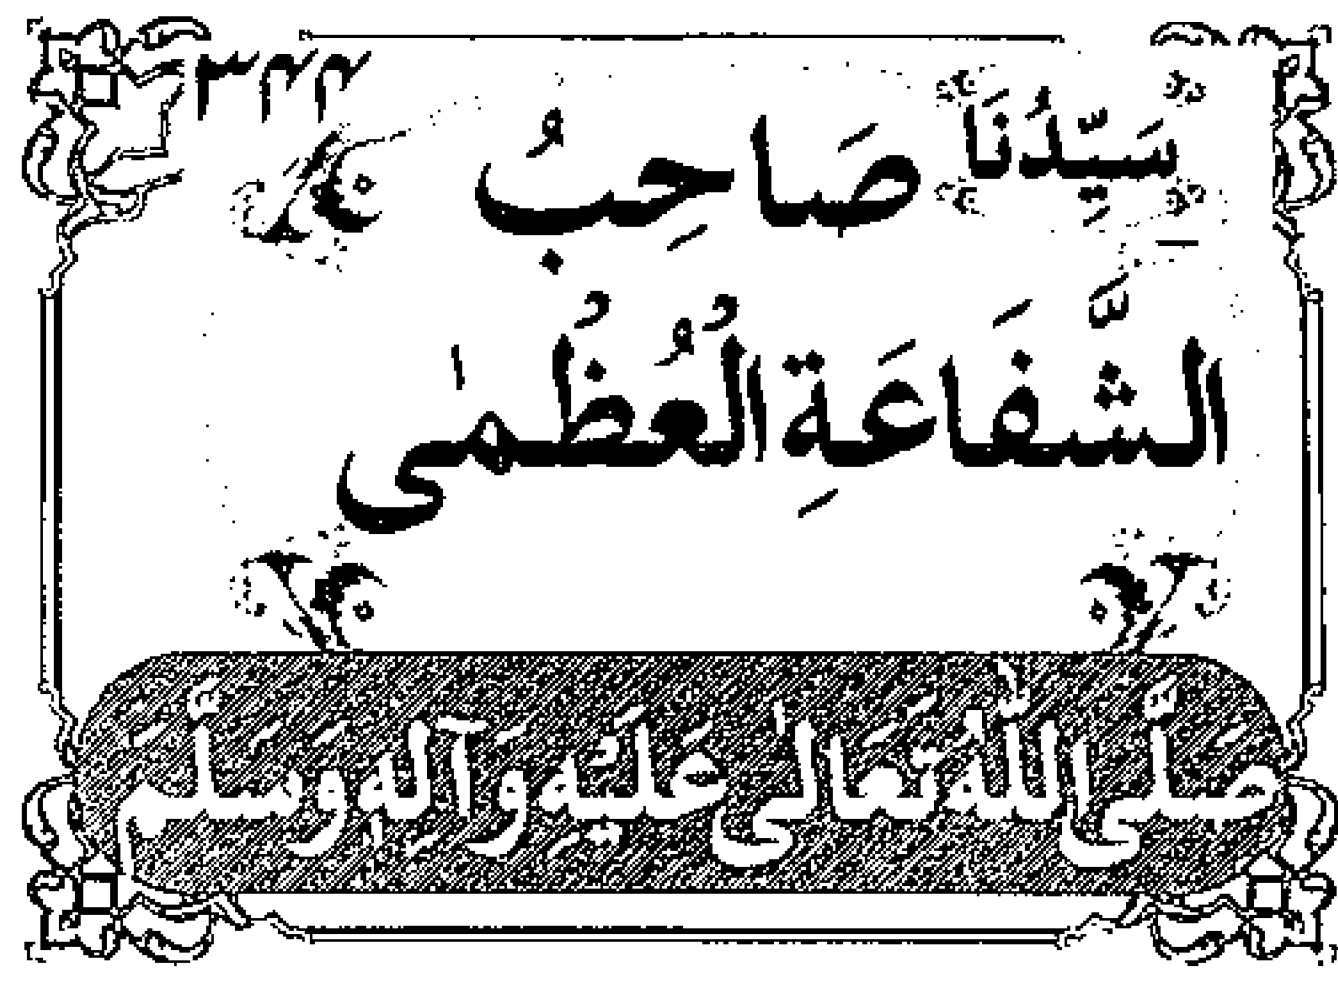 ۳۴۴
سَيِّدُنَا صَاحِبُ
الشَّفَاعَةِ الْعُظُمٰى
صَلَّى اللّٰهُ تَعَالٰى عَلَيْهِ وَآلِهٖ وَسَلَّمَ